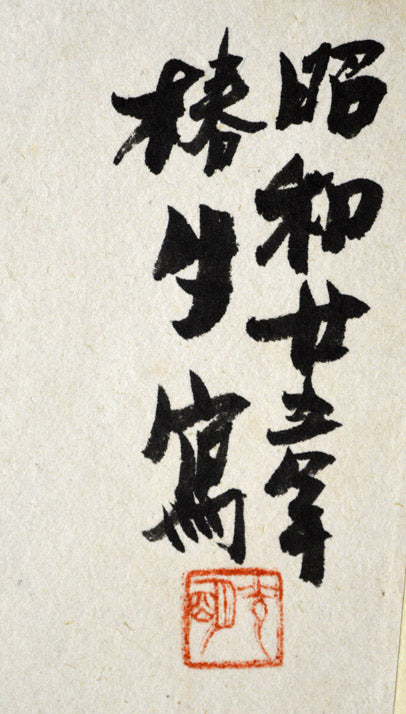 昭和廿五年
椿生寫